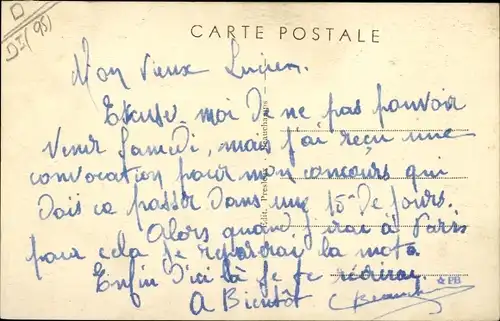 DI (95)
CARTE POSTALE
Mon vieux
Excuse-moi de ne pas pouvoir
venir samedi, mais j'ai reçu une
convocation pour mon concours qui
dois ce passer dans une 15ne de jours.
Alors quand irai à Paris
pour cela je reparerai la moto
Enfin d'ici là je te
A Bientôt
Edit. Presles - Beauchamps
PB